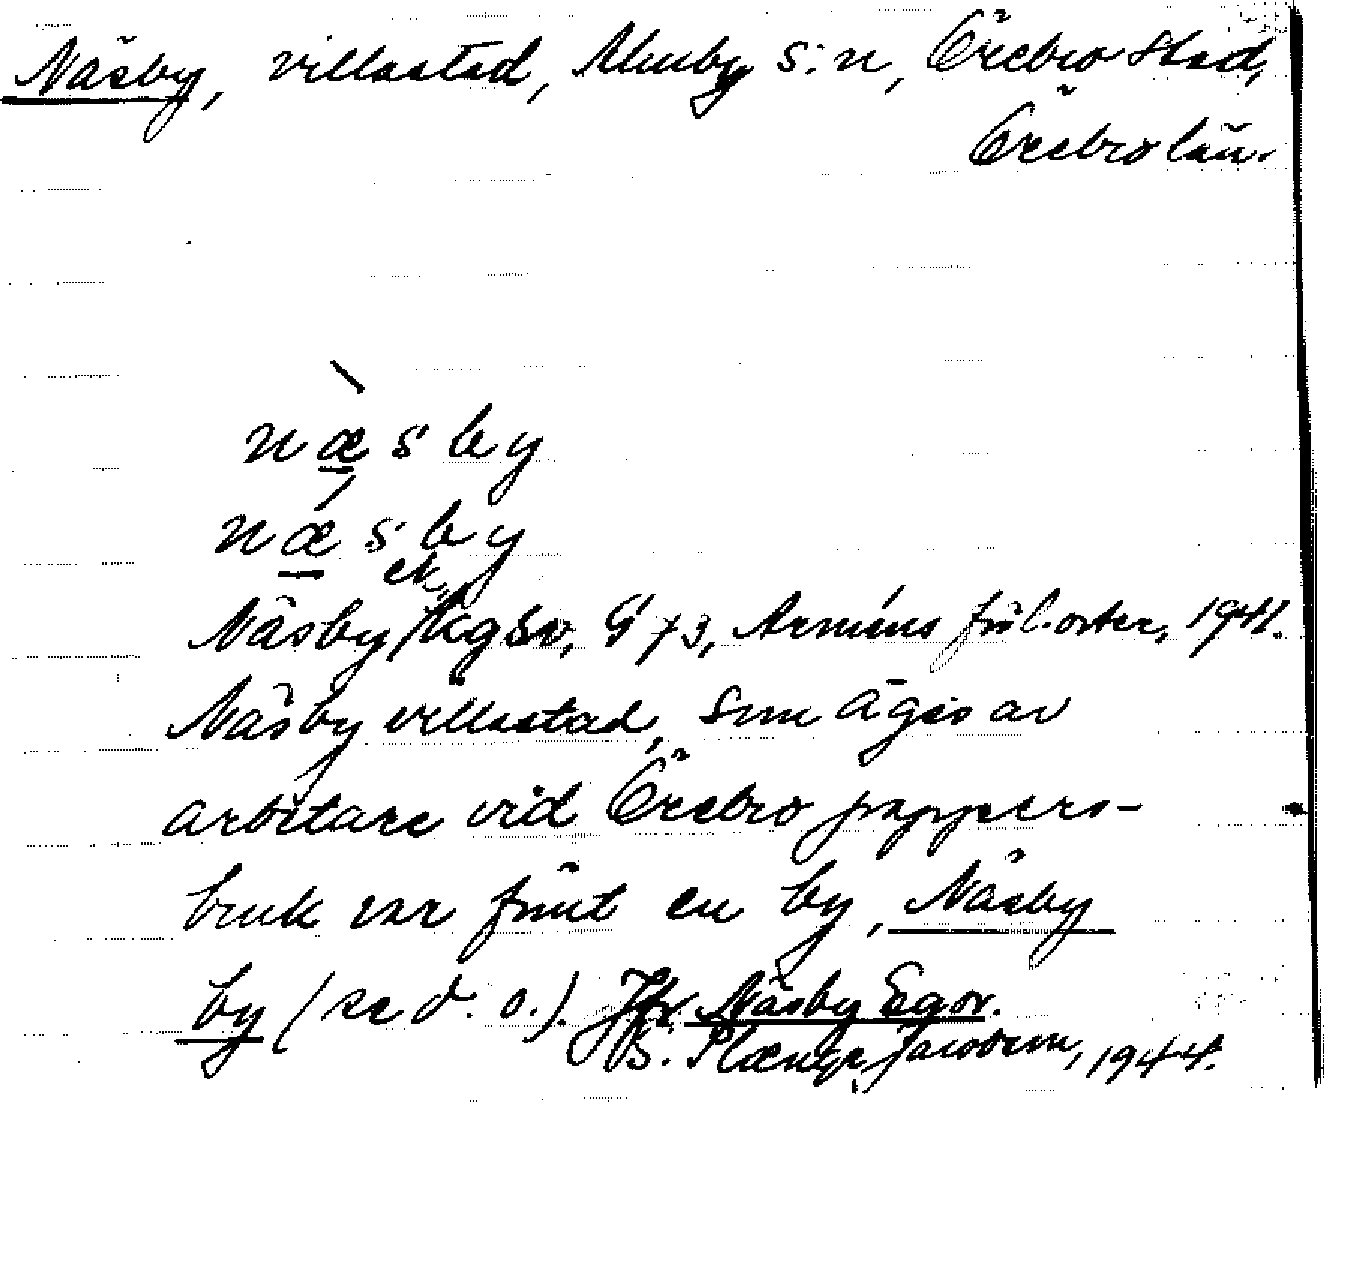 Näsby, villastad, Almby s:n, Örebro stad,
Örebro län.
næ̀sby
nǽsby
ek.
Näsby, G 73, Arméns förl.orter, 1941.
Näsby villastad, som äges av
arbetare vid Örebro pappers-
bruk var förut en by, Näsby
by (se d. o.). Jfr Näsby Egor.
S. Plænge Jacobson, 1944.